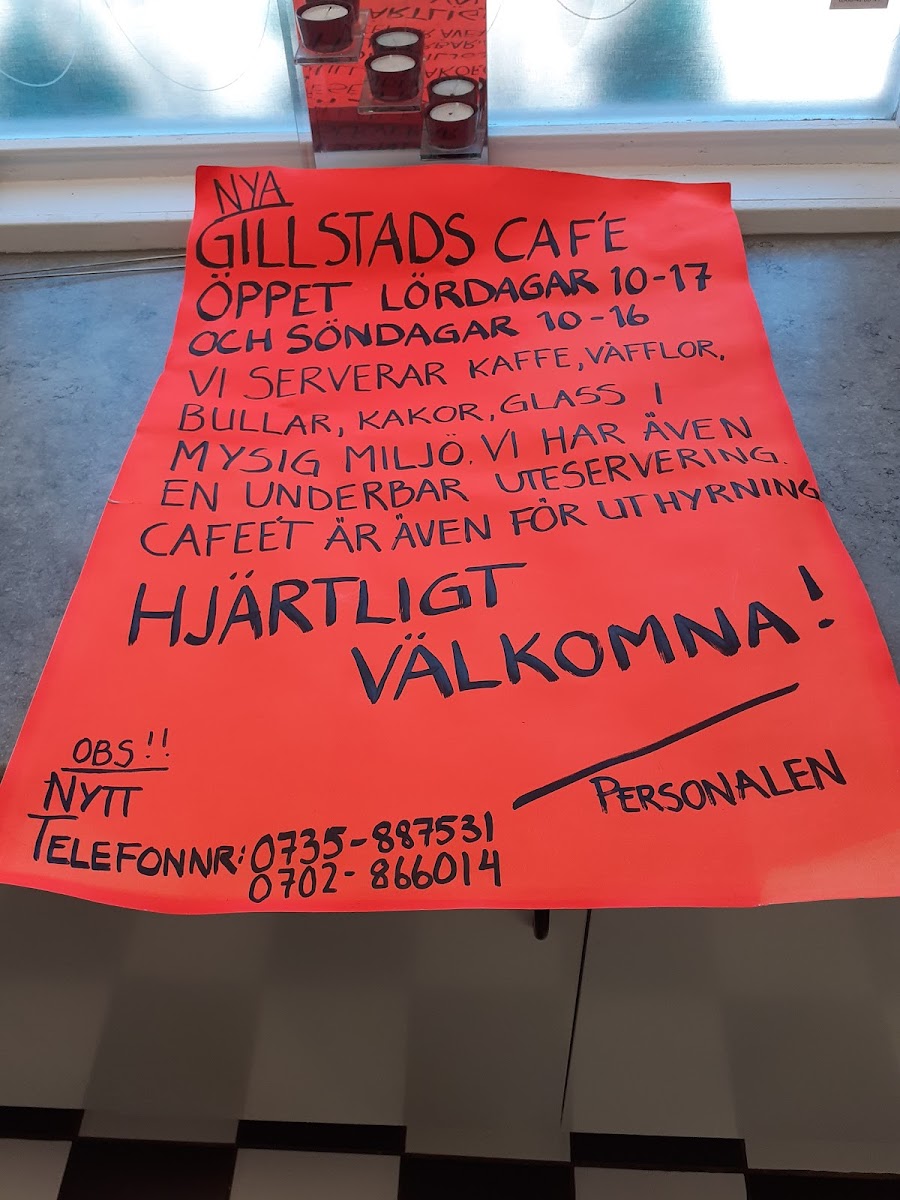 NYA
GILLSTADS CAFÉ
ÖPPET LÖRDAGAR 10-17
OCH SÖNDAGAR 10-16
VI SERVERAR KAFFE, VÅFFLOR,
BULLAR, KAKOR, GLASS I
MYSIG MILJÖ. VI HAR ÄVEN
EN UNDERBAR UTESERVERING.
CAFEÉT ÄR ÄVEN FÖR UTHYRNING
HJÄRTLIGT
VÄLKOMNA!
PERSONALEN
OBS!!
NYTT
TELEFONNR: 0735-887531
0702-866014